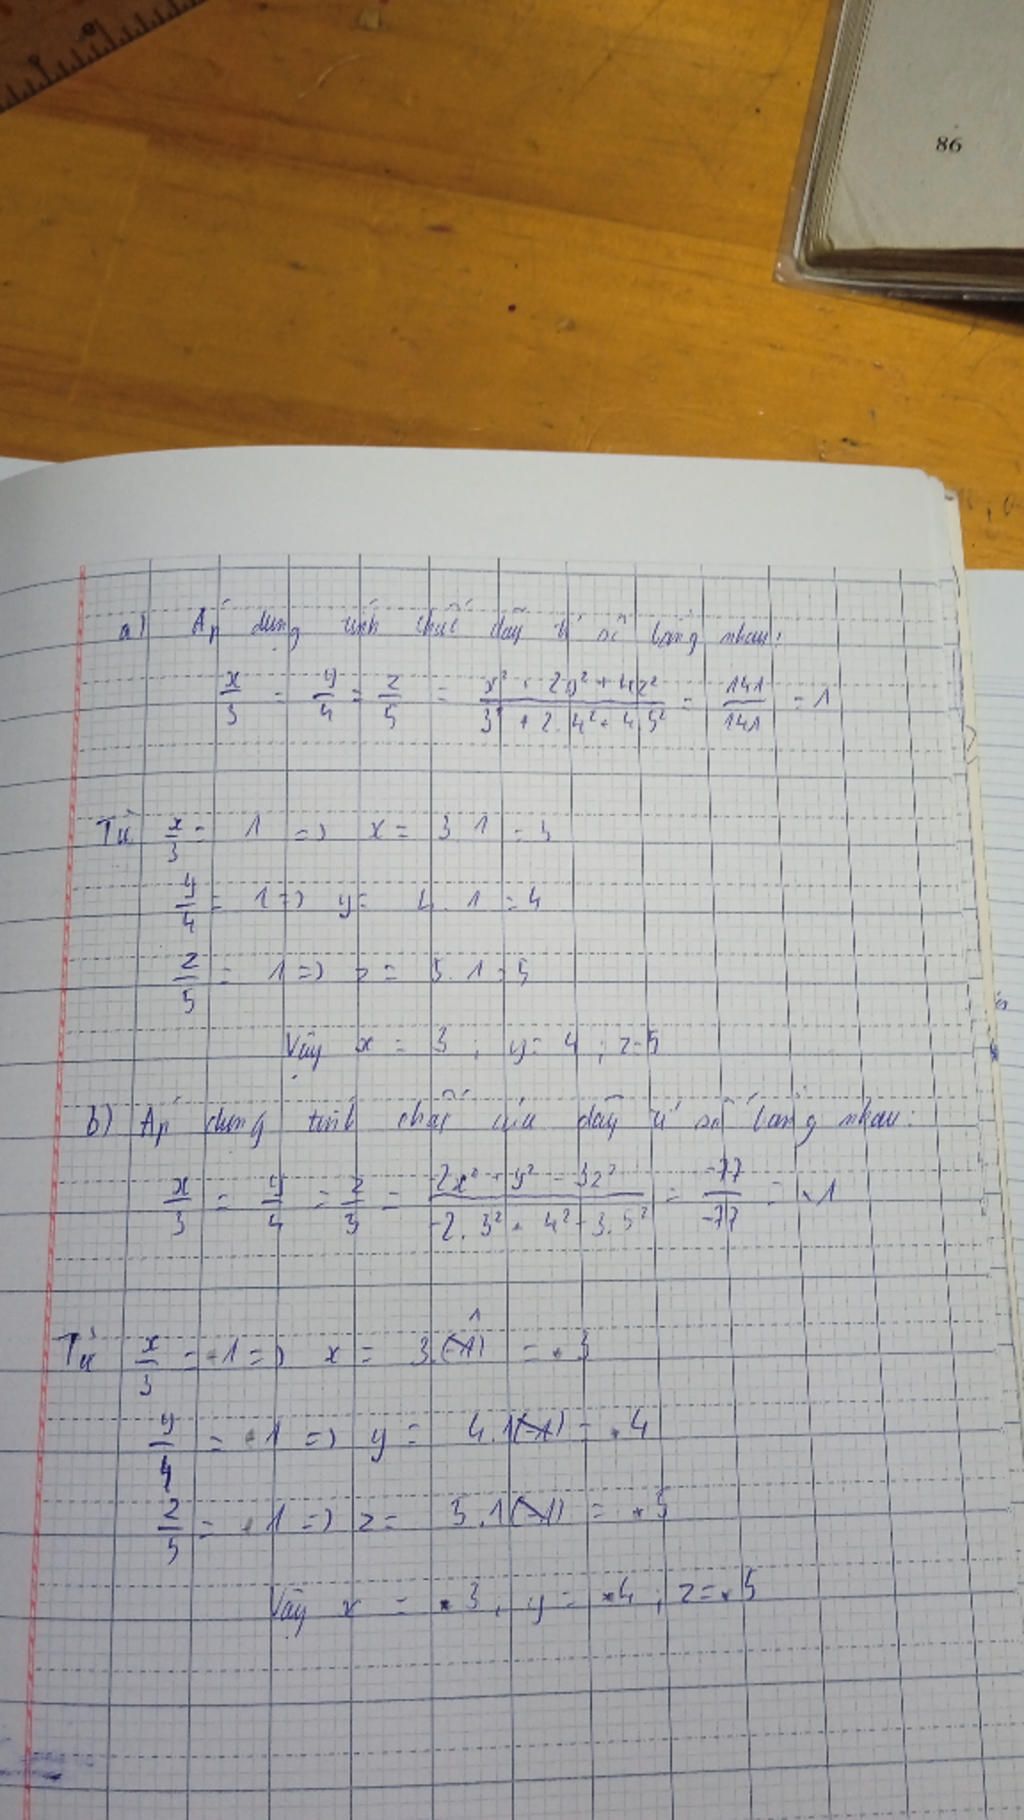 86
a) Áp dụng tính chất dãy tỉ số bằng nhau:
x/3 = y/4 = z/5 = (x² + 2y² + 4z²)/(3² + 2.4² + 4.5²) = 141/141 = 1
Từ x/3 = 1 => x = 3.1 = 3
y/4 = 1 => y = 4.1 = 4
z/5 = 1 => z = 5.1 = 5
Vậy x = 3 ; y = 4 ; z = 5
b) Áp dụng tính chất của dãy tỉ số bằng nhau.
x/3 = y/4 = z/3 = (-2x² + y² - 3z²)/(-2.3² + 4² - 3.5²) = -77/-77 = 1
Từ x/3 = 1 => x = 3.1 = 3
y/4 = 1 => y = 4.1 = 4
z/5 = 1 => z = 5.1 = 5
Vậy x = 3 ; y = 4 ; z = 5